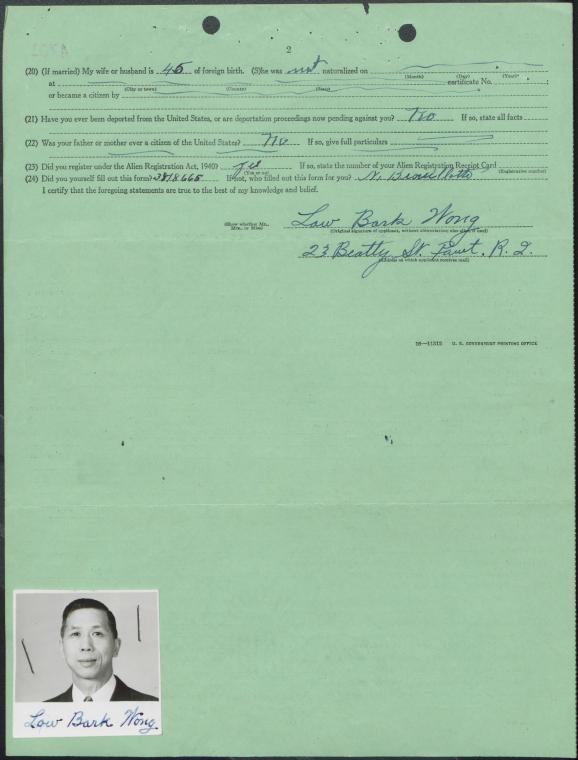 2
(20) (If married) My wife or husband is 45 of foreign birth. (S)he was not naturalized on
(Month) (Day) (Year)
at certificate No. ;
(City or town) (County) (State)
or became a citizen by
(21) Have you ever been deported from the United States, or are deportation proceedings now pending against you? No If so, state all facts
(22) Was your father or mother ever a citizen of the United States? No If so, give full particulars
(23) Did you register under the Alien Registration Act, 1940? yes If so, state the number of your Alien Registration Receipt Card
(Yes or no) (Registration number)
(24) Did you yourself fill out this form? 3818665 If not, who filled out this form for you? N.
I certify that the foregoing statements are true to the best of my knowledge and belief.
(Show whether Mr., Mrs., or Miss)
Low Bark Wong
(Original signature of applicant, without abbreviation, also alias, if used)
23 Beatty St. Pawt. R. I.
(Address at which applicant receives mail)
16—11315 U. S. GOVERNMENT PRINTING OFFICE
Low Bark Wong